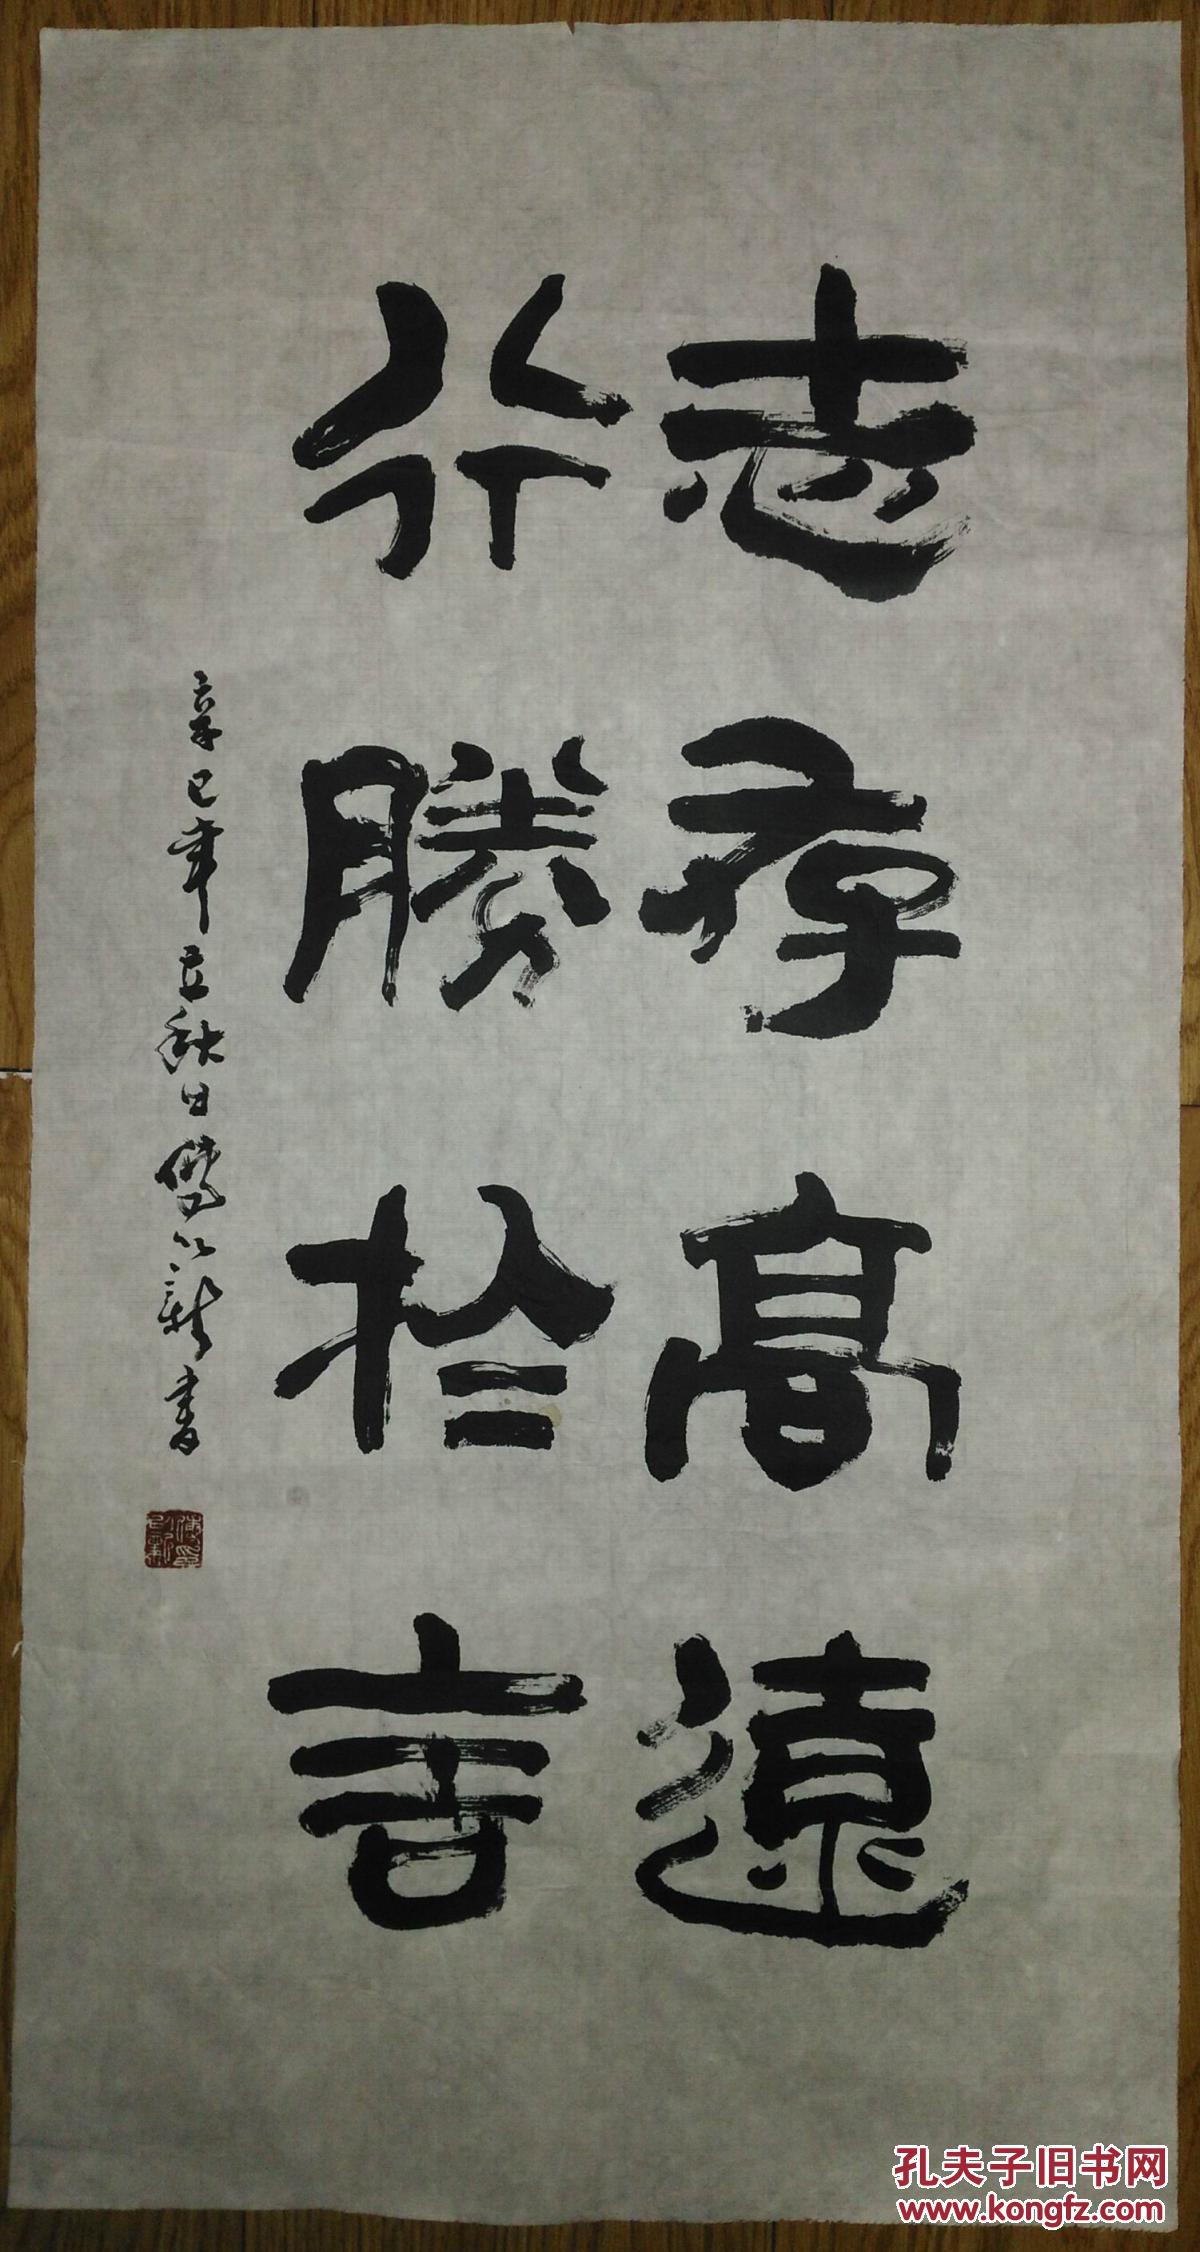 志存高遠
行勝於言
辛巳年立秋日傅以新書
孔夫子旧书网
www.kongfz.com